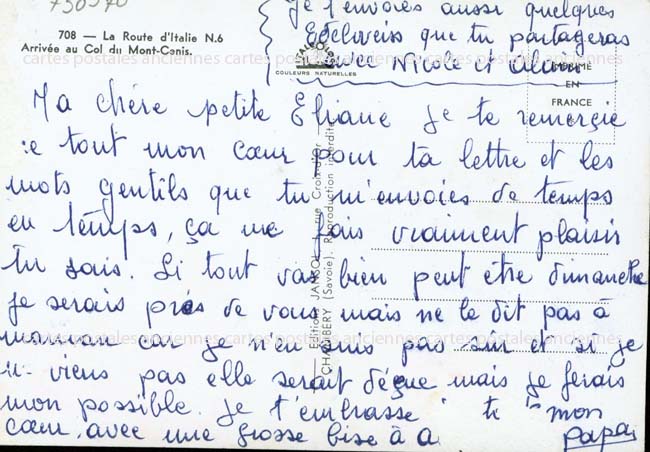 730970
708 — La Route d'Italie N.6
Arrivée au Col du Mont-Cenis.
je t'envoies aussi quelques
Edelveiss que tu partageras
avec Nicole et
COULEURS NATURELLES
IMPRIMÉ
EN
FRANCE
cartes postales anciennes cartes postales anciennes cartes postales anciennes
Ma chére petite Eliane je te remerçie
de tout mon cœur pour ta lettre et les
mots gentils que tu m'envoies de temps
en temps, ça me fais vraiment plaisir
tu sais. Si tout vas bien peut être dimanche
je serais prés de vous mais ne le dit pas à
maman car je n'en suis pas sûr et si je
viens pas elle serait déçue mais je ferais
mon possible. Je t'embrasse mon
cœur, avec une grosse bise à
Papa
Editions JANSOL, rue Croix-d'Or
CHAMBERY (Savoie). Reproduction interdite
cartes postales anciennes cartes postales anciennes cartes postales anciennes